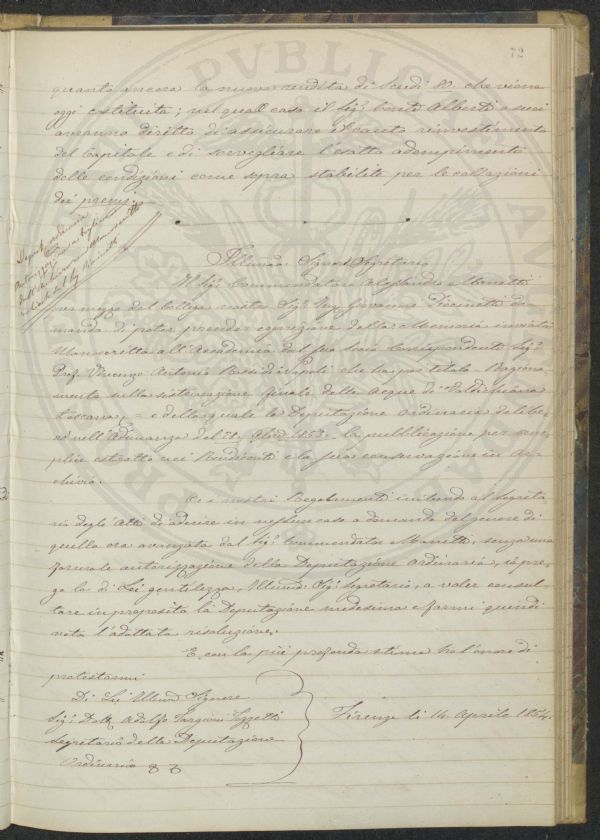 72
quanto ancora la nuova rendita di Scudi 80. che viene
oggi costituita; nel qual caso il Sig.r Conte Alberti e suoi
avranno diritto di assicurare il cauto reinvestimento
del Capitale e di sorvegliare l'esatto adempimento
delle condizioni come sopra stabilite per le collazioni
dei premj.
Illmo. Signor Segretario
Il Sig.r Commendatore Alessandro Manetti
per mezzo del Collega nostro Sig.r Giovanni do-
manda di poter prender cognizione della Memoria inviata
Manoscritta all'Accademia dal suo Socio Corrispondente Sig.r
Prof. Vincenzo Antonio Rossi di Napoli che ha per titolo Ragiona-
mento sulla sistemazione finale delle Acque di Valdichiana
Toscana, = e della quale la Deputazione Ordinaria delibe-
rò nell'Adunanza del 1853. la pubblicazione per sem-
plice estratto nei Rendiconti e la sua conservazione in Ar-
chivio.
Ce i nostri Regolamenti inibendo al Segreta-
rio degli Atti di aderire in nessun caso a domande del genere di
quella ora avanzata dal Sig.r Commendator Manetti, senza una
formale autorizzazione della Deputazione Ordinaria, io pre-
go la di Lei gentilezza, Illmo. Sig.r Segretario, a voler consul-
tare in proposito la Deputazione medesima e farmi quindi
nota l'adottata risoluzione.
E con la più profonda stima ho l'onore di
protestarmi
Di Lei Illmo Signore
Sig.r Dott. Adolfo Targioni Tozzetti
Segretario della Deputazione
Ordinaria
Firenze li 14. Aprile 1854.